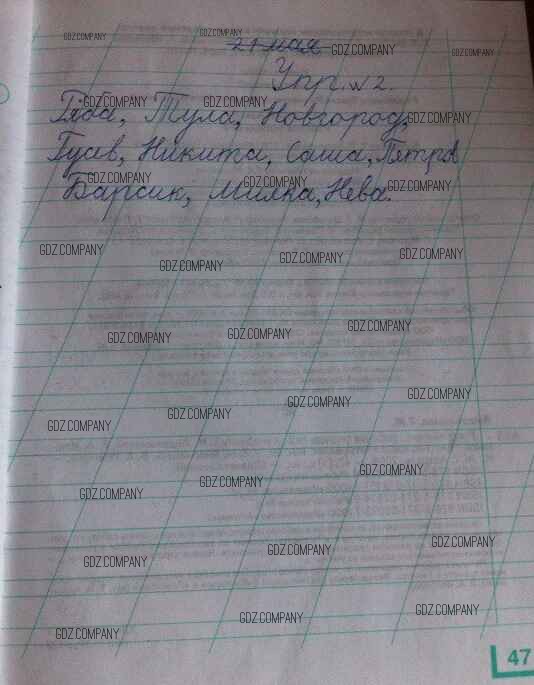 21 мая
Упр. №2.
Ряба, Тула, Новгород,
Гусев, Никита, Саша, Пятров
Барсик, Милка, Нева.
47
GDZ.COMPANY